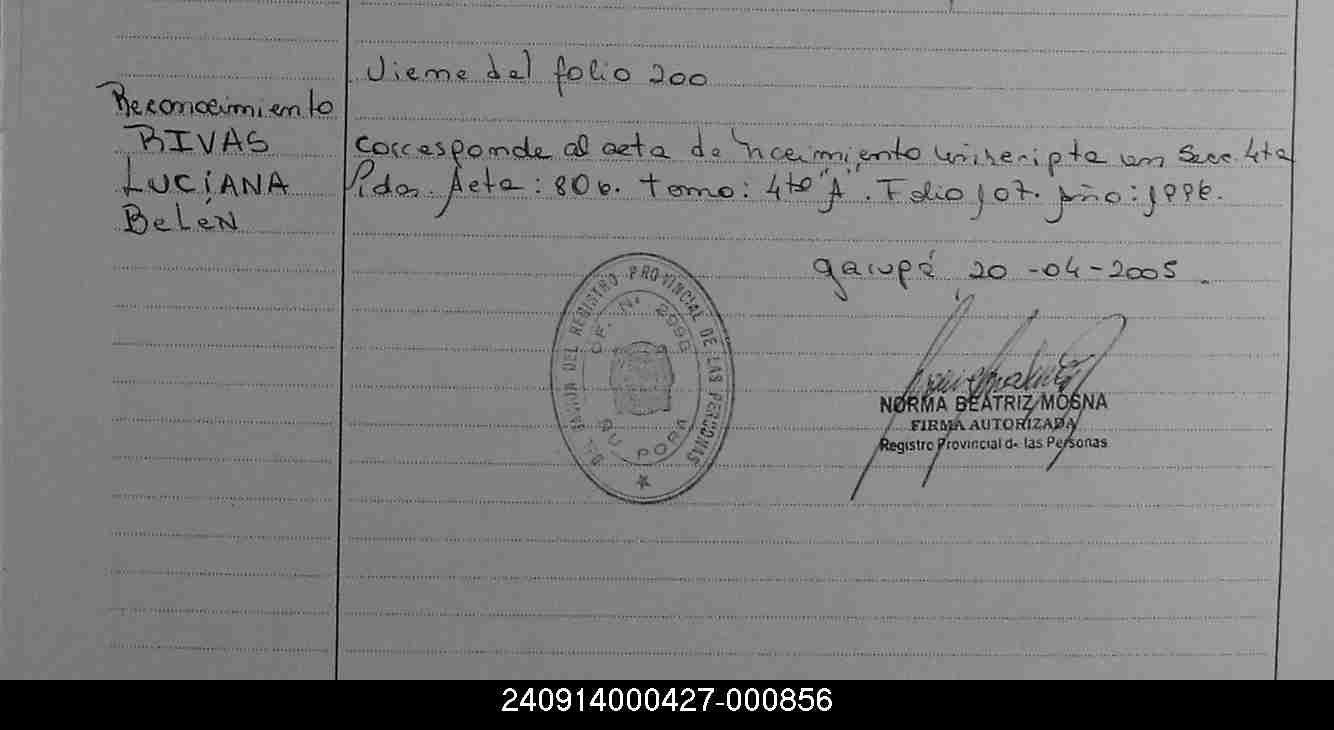 Viene del folio 200
Reconocimiento
RIVAS
LUCÍANA
BeLéN
Corresponde al acta de nacimiento inscripta en Secc. 4ta
Pdas. Acta: 806. Tomo: 4to "A". Folio 107. Año: 1996.
garupá 20-04-2005
DEL REGISTRO PROVINCIAL DE LAS PERSONAS
OF. Nº 2998
PORA
NORMA BEATRIZ MOSNA
FIRMA AUTORIZADA
Registro Provincial de las Personas
240914000427-000856